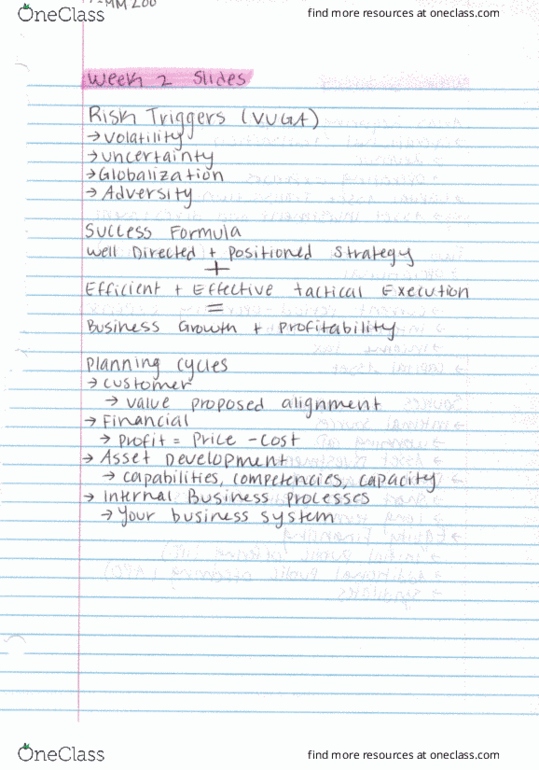 MM 200
OneClass
find more resources at oneclass.com
Week 2 Slides
Risk Triggers (VUGA)
→ Volatility
→ uncertainty
→ Globalization
→ Adversity
Success Formula
Well Directed + Positioned Strategy
+
Efficient + Effective tactical Execution
=
Business Growth + Profitability
Planning cycles
→ customer
→ value proposed alignment
→ Financial
→ Profit = Price - Cost
→ Asset Development
→ capabilities, competencies, capacity
→ Internal Business processes
→ Your business system
OneClass
find more resources at oneclass.com